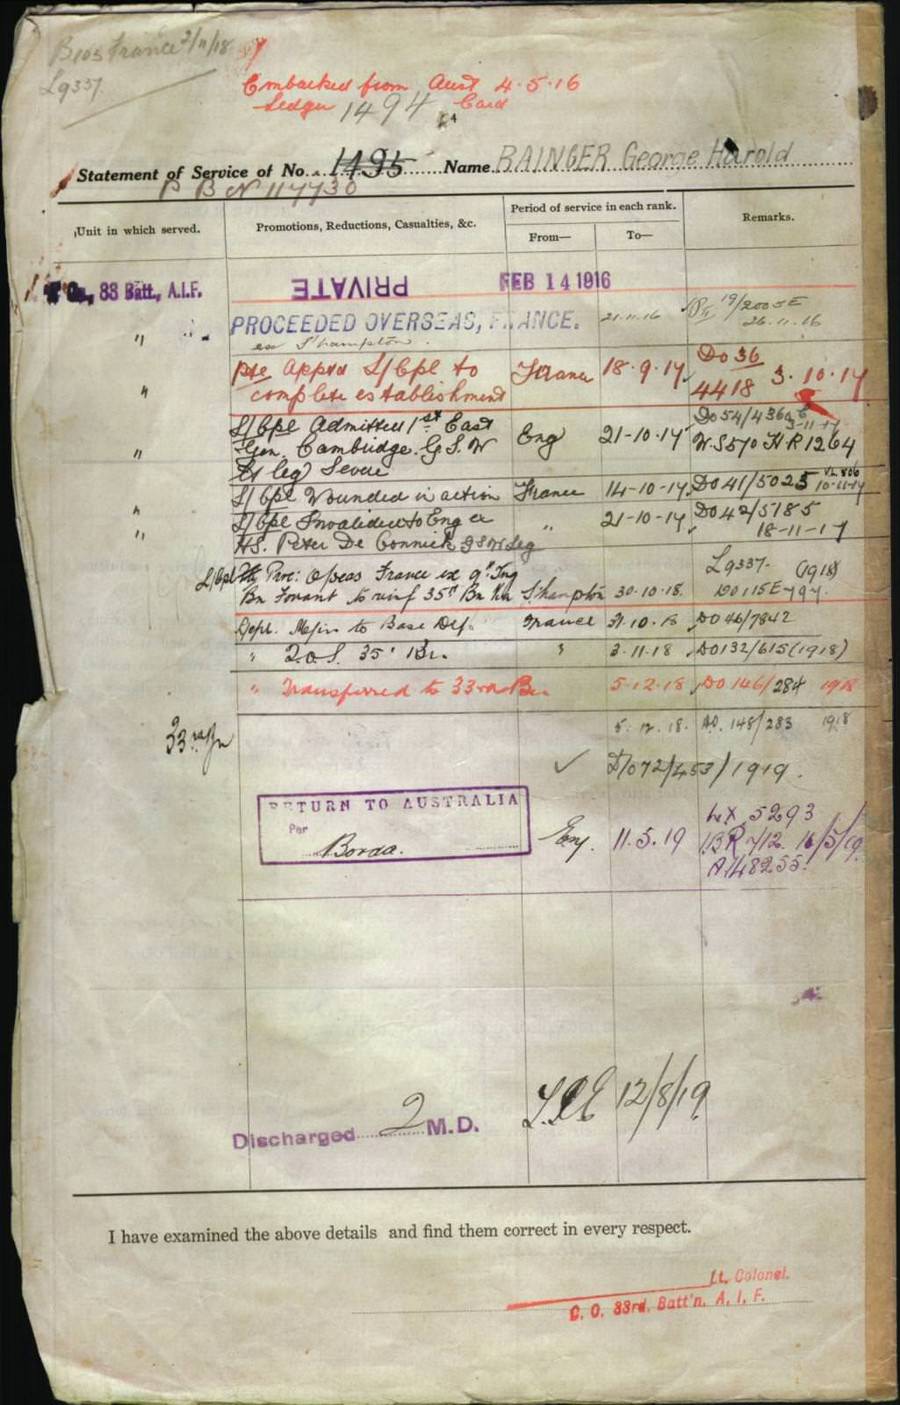 B103 France 2/11/18
L9337
Embarked from Aust 4.5.16
Ledger 1494 Card
Statement of Service of No. 1495 Name RAINGER George Harold
P B N 117730
Unit in which served.
Promotions, Reductions, Casualties, &c.
Period of service in each rank.
From—
To—
Remarks.
Co., 33 Batt., A.I.F. PRIVATE FEB 14 1916
" PROCEEDED OVERSEAS, FRANCE. 21.11.16 19/2005E
ex S'hampton. 26.11.16
" Pte Apptd L/Cpl to France 18.9.17 Do 36
complete establishment 4418 3.10.17
L/Cpl Admitted 1st East Eng 21-10-17 Do 54/436
" Gen. Cambridge. G.S.W W.5570 HR 1264
Leg Severe
L/Cpl Wounded in action France 14-10-17 Do 41/5025 10-11-17
" L/Cpl Invalided to Eng ex " 21-10-17 Do 42/5185
" HS. Peter De Connick GSW Leg 18-11-17
L/Cpl Proc: O/seas France ex 9th Trg L9337 (1918)
Bn Fovant to reinf 35th Bn via S'hampton 30-10-18 DO 115E
M/in to Base Dep. France 31.10.18 DO 46/7842
" T.O.S. 35' Bn. " 3-11-18 DO 132/615 (1918)
" Transferred to 33rd Bn 5-12-18 DO 146/284 1918
5.12.18. 148/283 1918
33rd Bn
D/072/453/1919.
RETURN TO AUSTRALIA
Per
Borda.
Eng. 11.5.19
5293
16/5/19
A148255
Discharged 2 M.D. 12/8/19
I have examined the above details and find them correct in every respect.
Lt. Colonel.
C. O. 33rd. Batt'n. A. I. F.